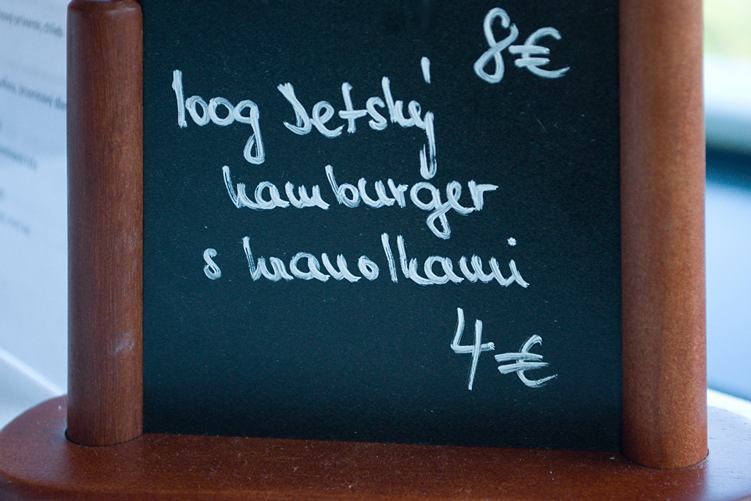 8€
100g Detský
hamburger
s hranolkami
4€